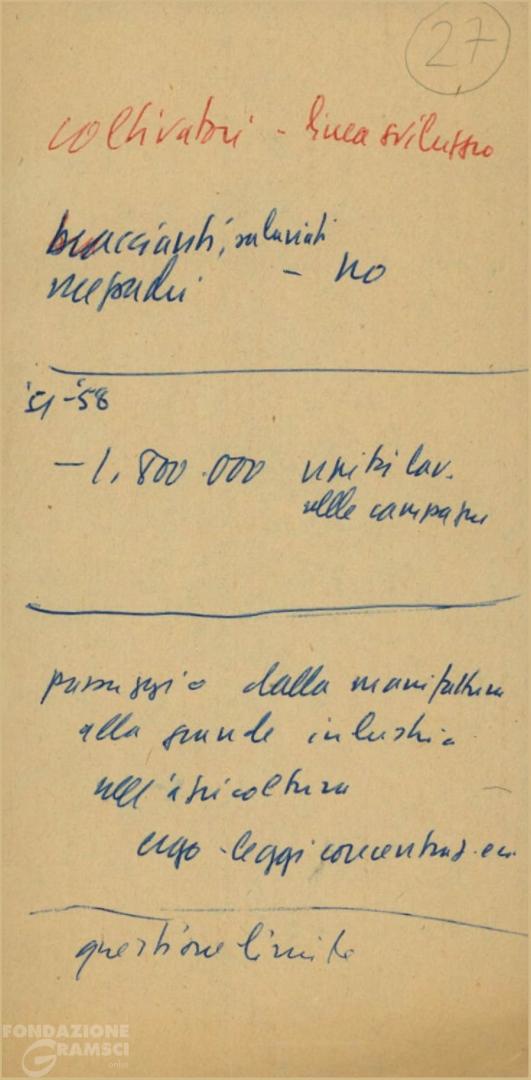 27
coltivatori - linea sviluppo
braccianti, salariati
mezzadri - no
'51-'58
- 1.800.000 unità lav.
nelle campagne
passaggio dalla manifattura
alla grande industria
nell'agricoltura
ergo - leggi concentraz. ecc.
questione limite
FONDAZIONE
GRAMSCI
onlus